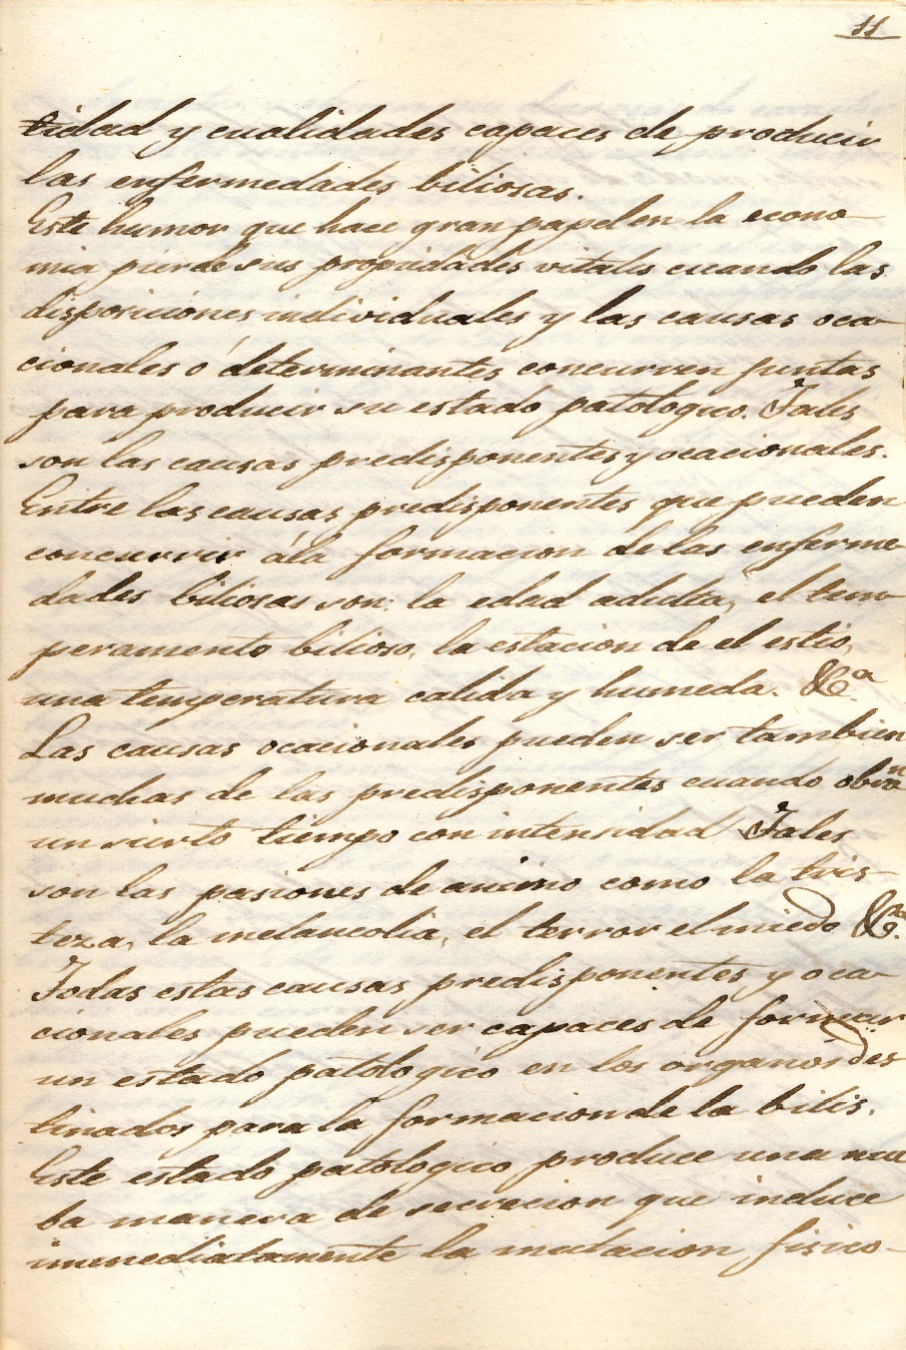 11
tidad y cualidades capaces de producir
las enfermedades biliosas.
Este humor que hace gran papel en la econo-
mia pierde sus propiedades vitales cuando las
disposiciones individuales y las causas oca-
cionales ó determinantes concurren juntas
para producir su estado patologico. Tales
son las causas predisponentes y ocacionales.
Entre las causas predisponentes que pueden
concurrir ála formacion de las enferme-
dades biliosas son: la edad adulta, el tem-
peramento bilioso, la estacion de el estio,
una temperatura calida y humeda. &ª
Las causas ocacionales pueden ser tambien
muchas de las predisponentes cuando obran
un sierto tiempo con intensidad Tales
son las pasiones de animo como la tris-
teza, la melancolia, el terror el miedo &ª.
Todas estas causas predisponentes y oca-
cionales pueden ser capaces de formar
un estado patologico en los organos des
tinados para la formacion de la bilis.
Este estado patologico produce una nue
ba manera de secrecion que induce
immediatamente la mutacion fisico-